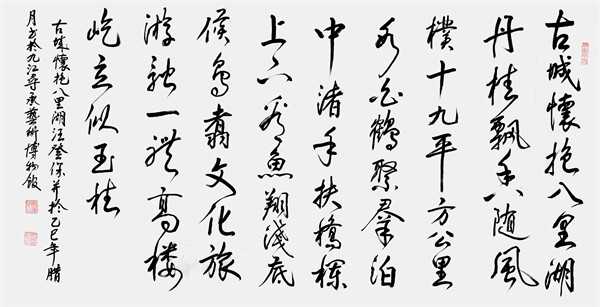 古城懷抱八里湖
丹桂飄随風
撲十九平方公里
水白鶴聚羣泊
中渚手扶橋欄
上下看魚翔淺底
候鳥翥文化旅
游融一體高楼
屹立似玉柱
古城懷抱八里湖汪登保并於乙巳年腊
月书於九江尋承藝術博物館